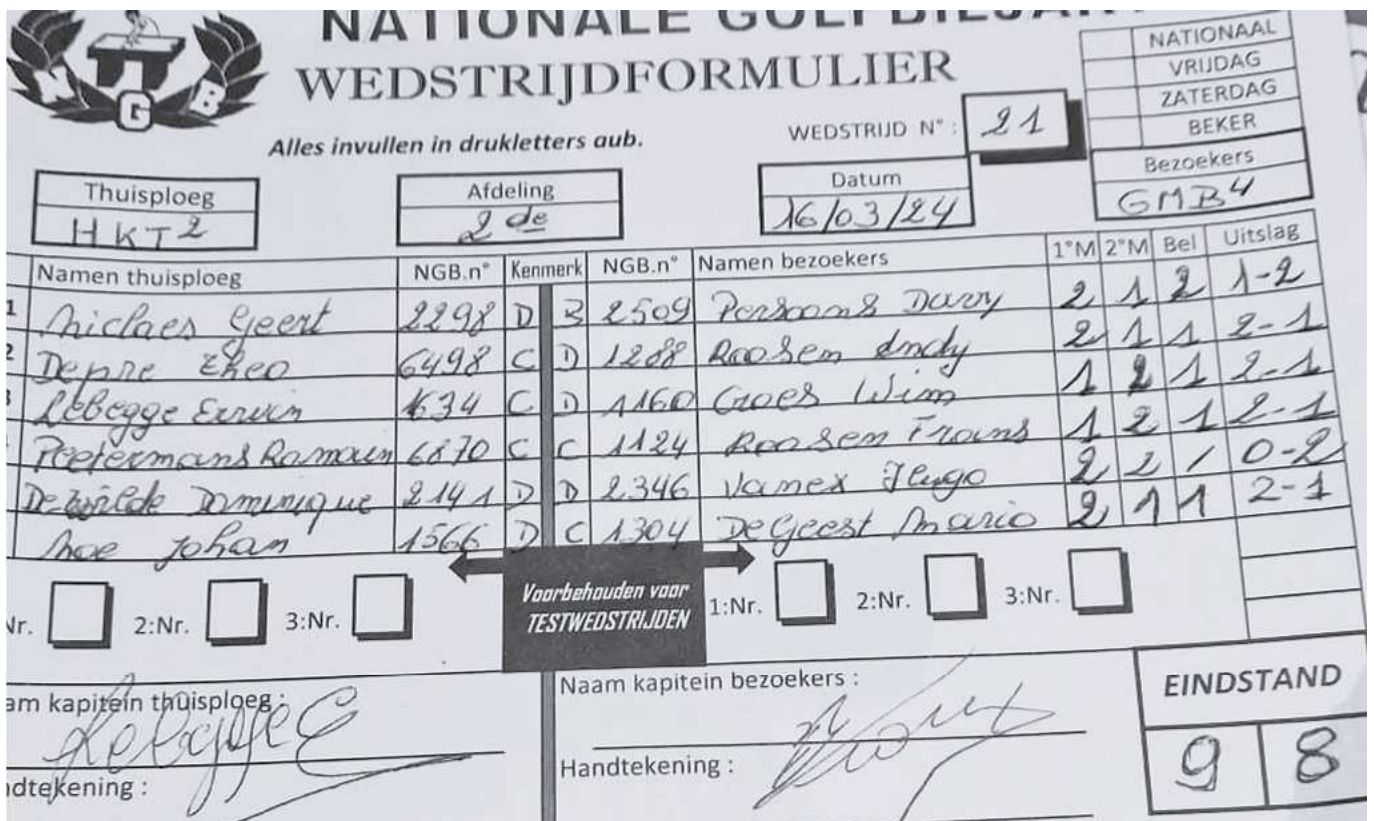 NATIONALE GOLFBILJART
WEDSTRIJDFORMULIER
NGB
Alles invullen in drukletters aub.
WEDSTRIJD N° : 21
NATIONAAL
VRIJDAG
ZATERDAG
BEKER
Thuisploeg
HKT2
Afdeling
2de
Datum
16/03/24
Bezoekers
GMB4
Namen thuisploeg NGB.n° Kenmerk NGB.n° Namen bezoekers 1°M 2°M Bel Uitslag
1 Geert 2298 D B 2509 Persoons Davy 2 1 2 1-2
2 Depre Theo 6498 C D 1288 Roosen Andy 2 1 1 2-1
3 Lebegge Erwin 1634 C D 1160 Goes Wim 1 2 1 2-1
Peetermans Romain 6870 C C 1124 Roosen Frans 1 2 1 2-1
De Wilde Dominique 2141 D D 2346 Vanex Hugo 2 2 / 0-2
Moe Johan 1566 D C 1304 De Geest Mario 2 1 1 2-1
Nr. 2:Nr. 3:Nr.
Voorbehouden voor
TESTWEDSTRIJDEN
1:Nr. 2:Nr. 3:Nr.
am kapitein thuisploeg :
Naam kapitein bezoekers :
EINDSTAND
9 8
ndtekening :
Handtekening :